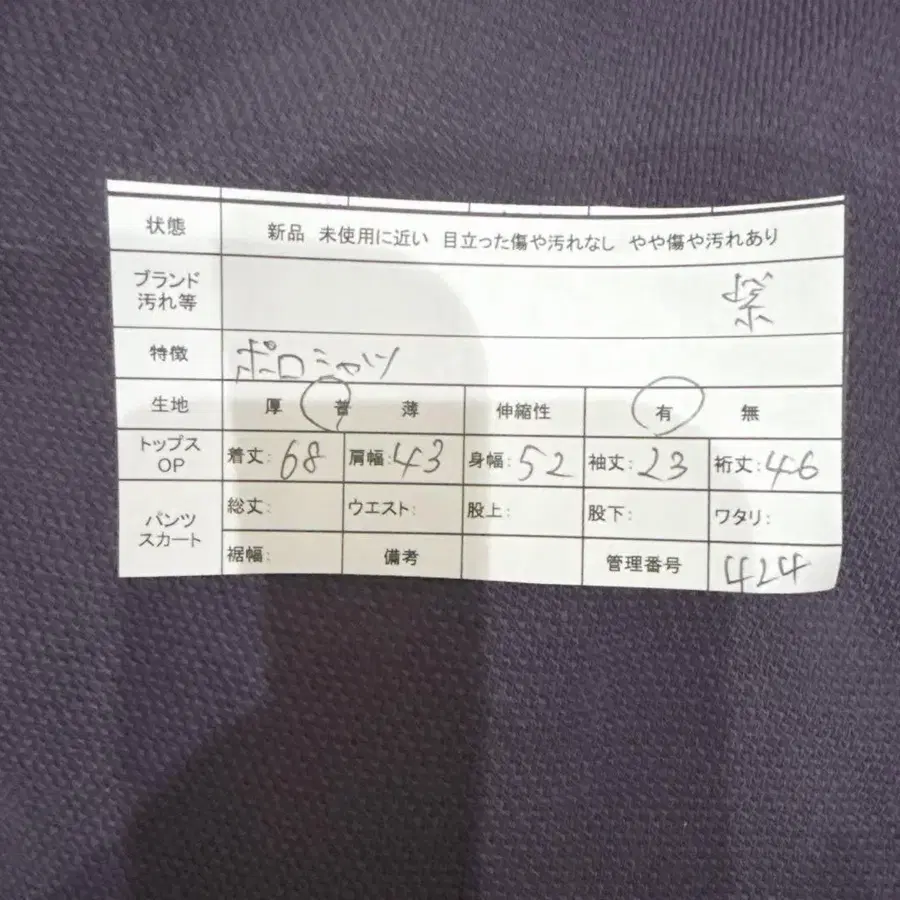 状態 新品 未使用に近い 目立った傷や汚れなし やや傷や汚れあり
ブランド
汚れ等 紫
特徴 ポロシャツ
生地 厚 普 薄 伸縮性 有 無
トップス
OP 着丈:68 肩幅:43 身幅:52 袖丈:23 裄丈:46
パンツ
スカート 総丈: ウエスト: 股上: 股下: ワタリ:
裾幅: 備考 管理番号 424